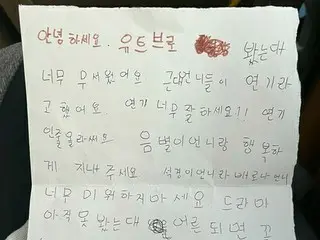 안녕하세요. 유트브로 봤는대
너무 무서웠어요 근대언니들이 연기라
고 했어요. 연기 너무잘하세요!! 연기
인줄몰라써요 음별이언니랑 행복하
게 지내주세요 석경이언니랑 베로나언니
너무미워하지마세요 드라마
아직못봤는대 어른되면 꼭